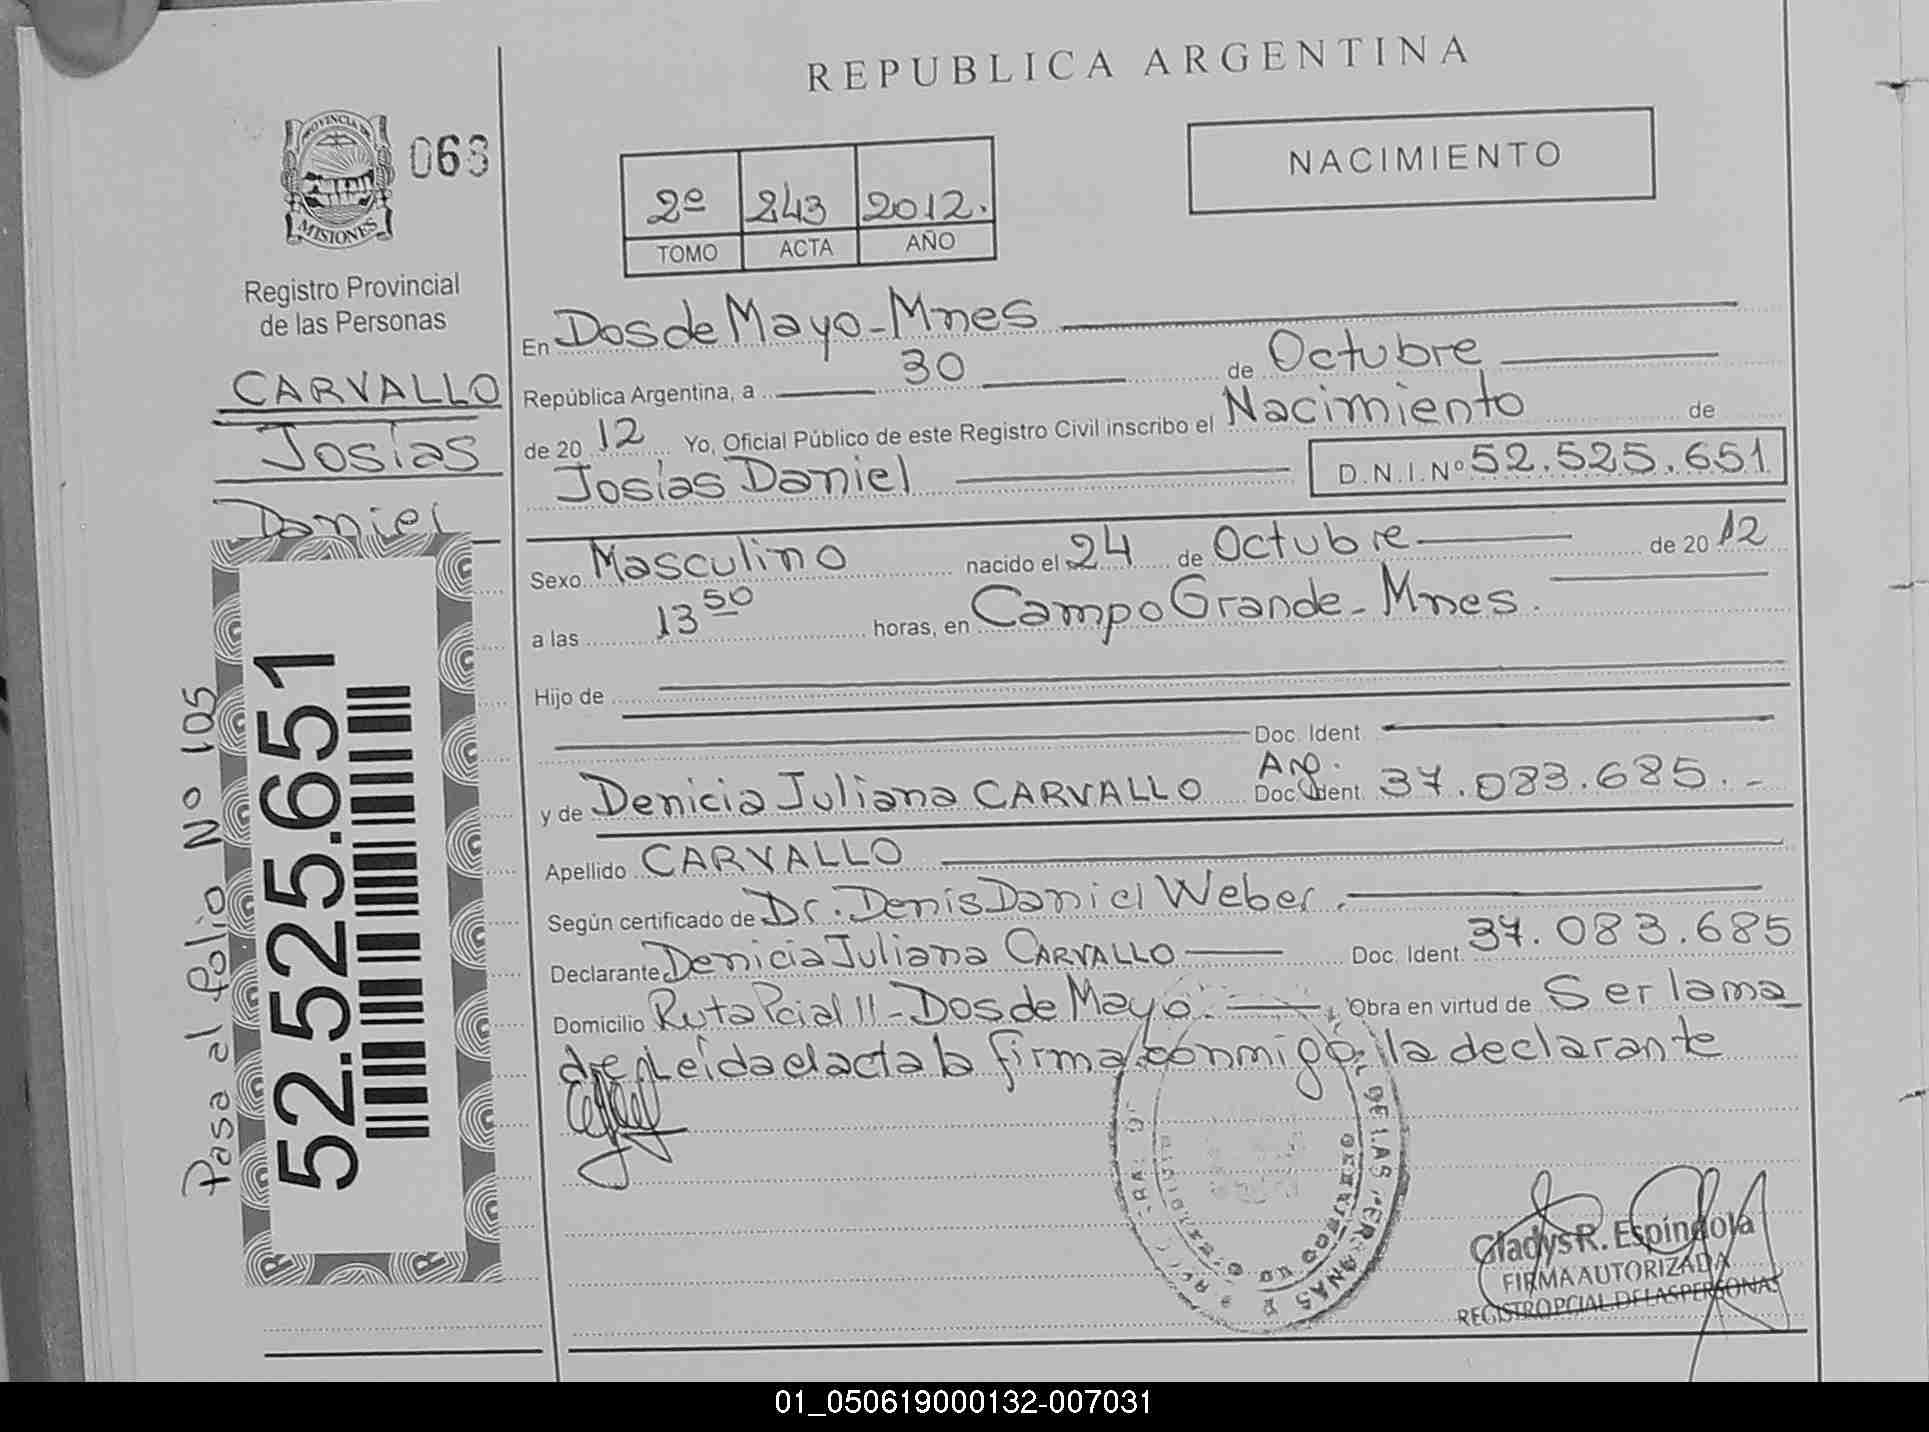 REPUBLICA ARGENTINA
PROVINCIA DE
MISIONES
063
NACIMIENTO
2º 243 2012.
TOMO ACTA AÑO
Registro Provincial
de las Personas
CARVALLO
Josías
Daniel
Pasa al folio Nº 105
52.525.651
En Dos de Mayo-Mnes
República Argentina, a 30 de Octubre
de 2012 Yo, Oficial Público de este Registro Civil inscribo el Nacimiento de
Josías Daniel D.N.I.Nº 52.525.651
Sexo Masculino nacido el 24 de Octubre de 2012
a las 13 50 horas, en Campo Grande-Mnes.
Hijo de
Doc. Ident
y de Denicia Juliana CARVALLO Doc. Ident Arg. 37.083.685.-
Apellido CARVALLO
Según certificado de Dr. Denis Daniel Weber.
Declarante Denicia Juliana CARVALLO Doc. Ident. 37.083.685
Domicilio Ruta Pcial 11-Dos de Mayo. Obra en virtud de Ser la ma
dre, Leída el acta la firma conmigo, la declarante
DE LAS PERSONAS
Gladys R. Espíndola
FIRMA AUTORIZADA
REGISTRO PCIAL. DE LAS PERSONAS
01_050619000132-007031